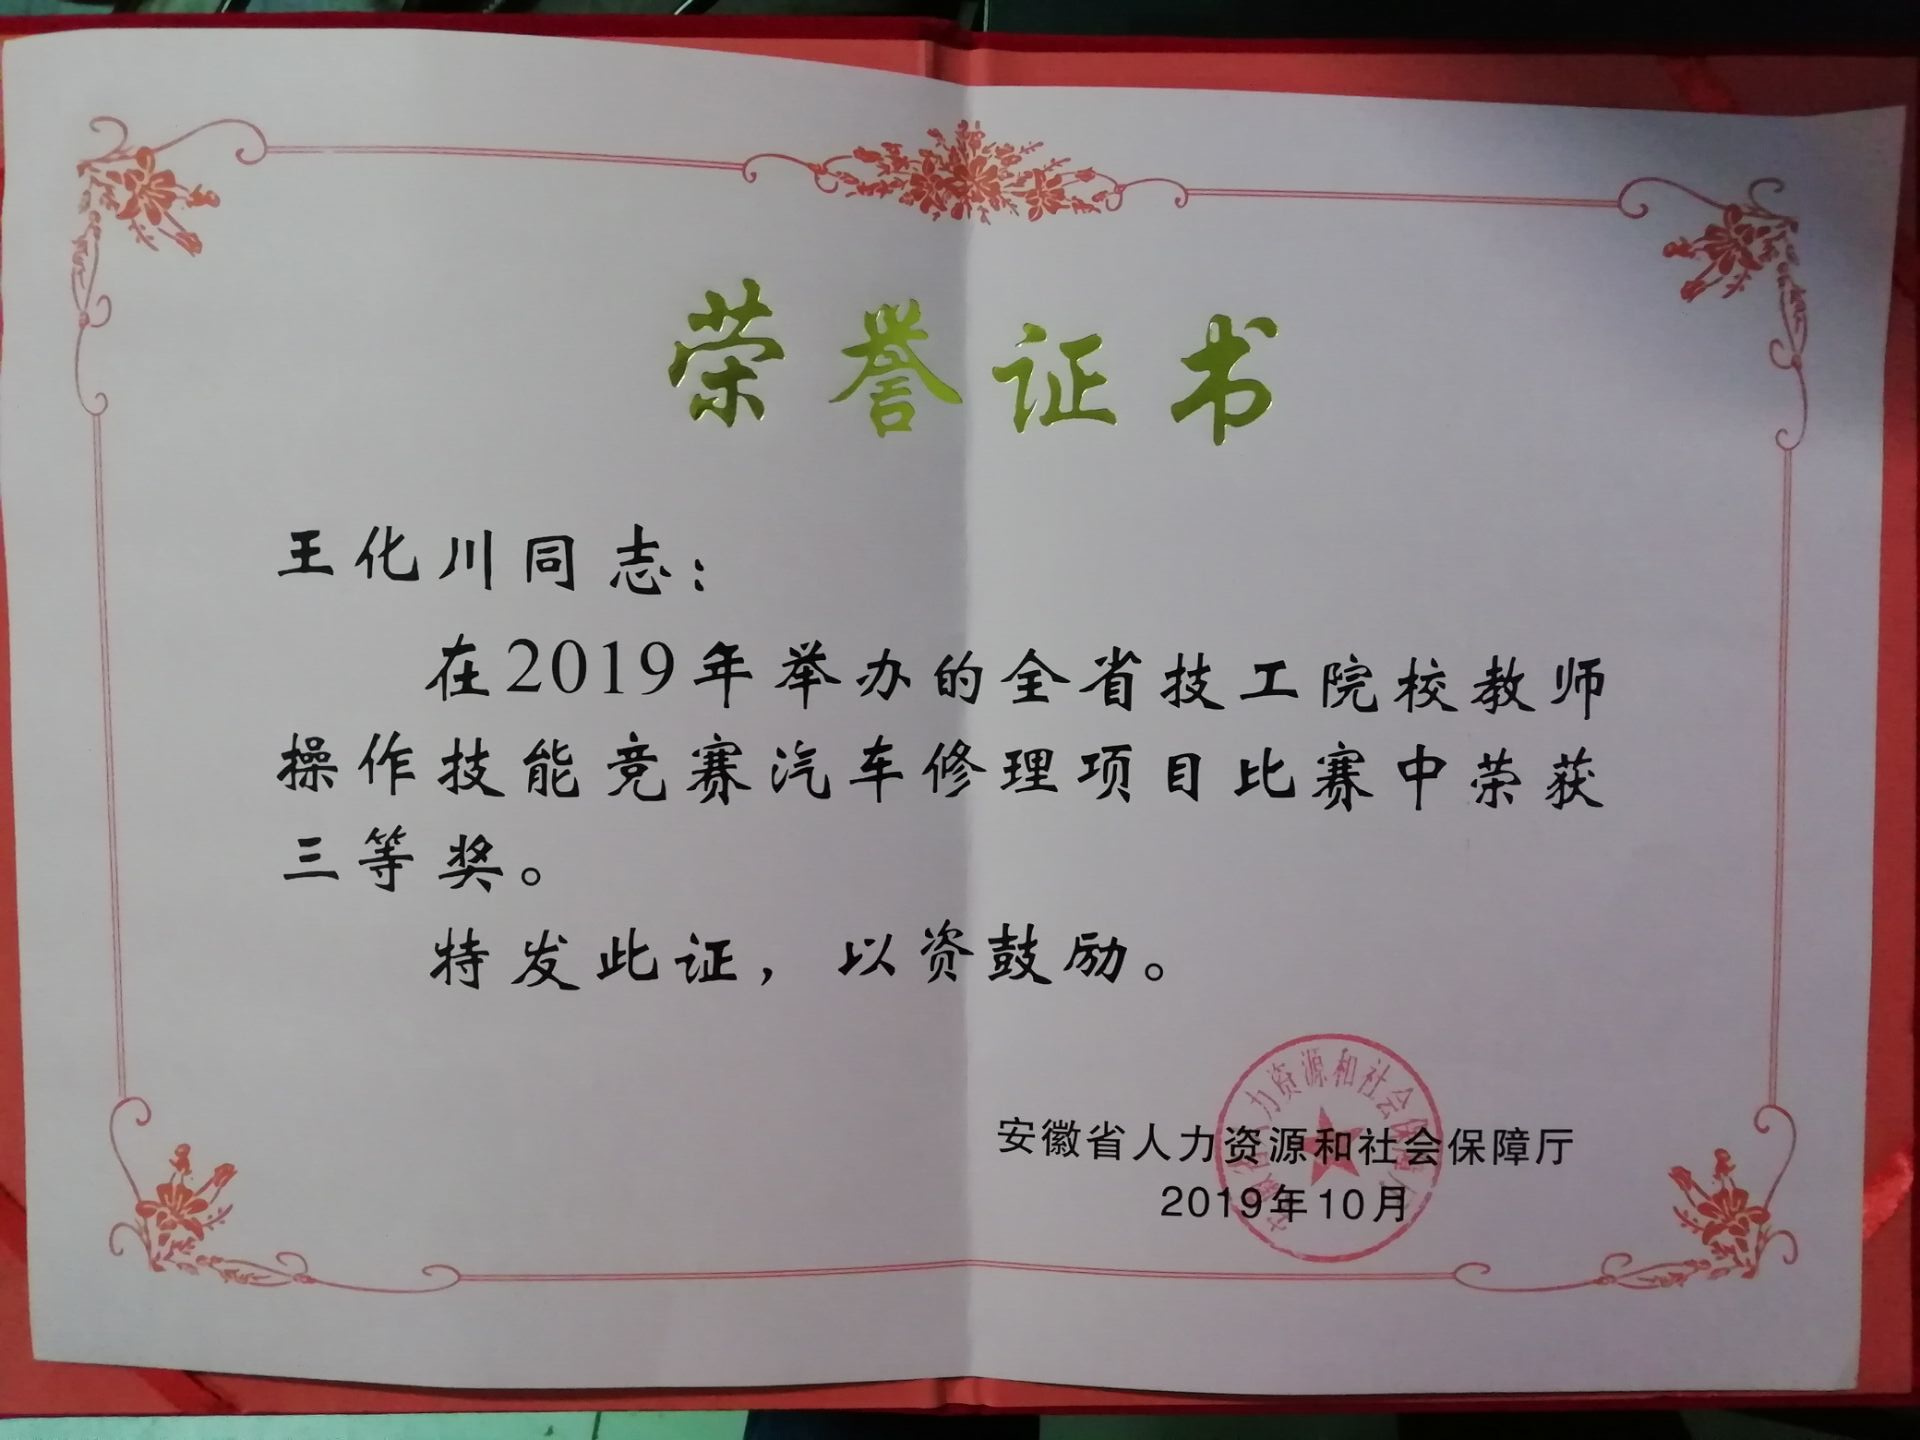 荣誉证书
王化川同志：
在2019年举办的全省技工院校教师
操作技能竞赛汽车修理项目比赛中荣获
三等奖。
特发此证，以资鼓励。
安徽省人力资源和社会保障厅
2019年10月
安徽省人力资源和社会保障厅